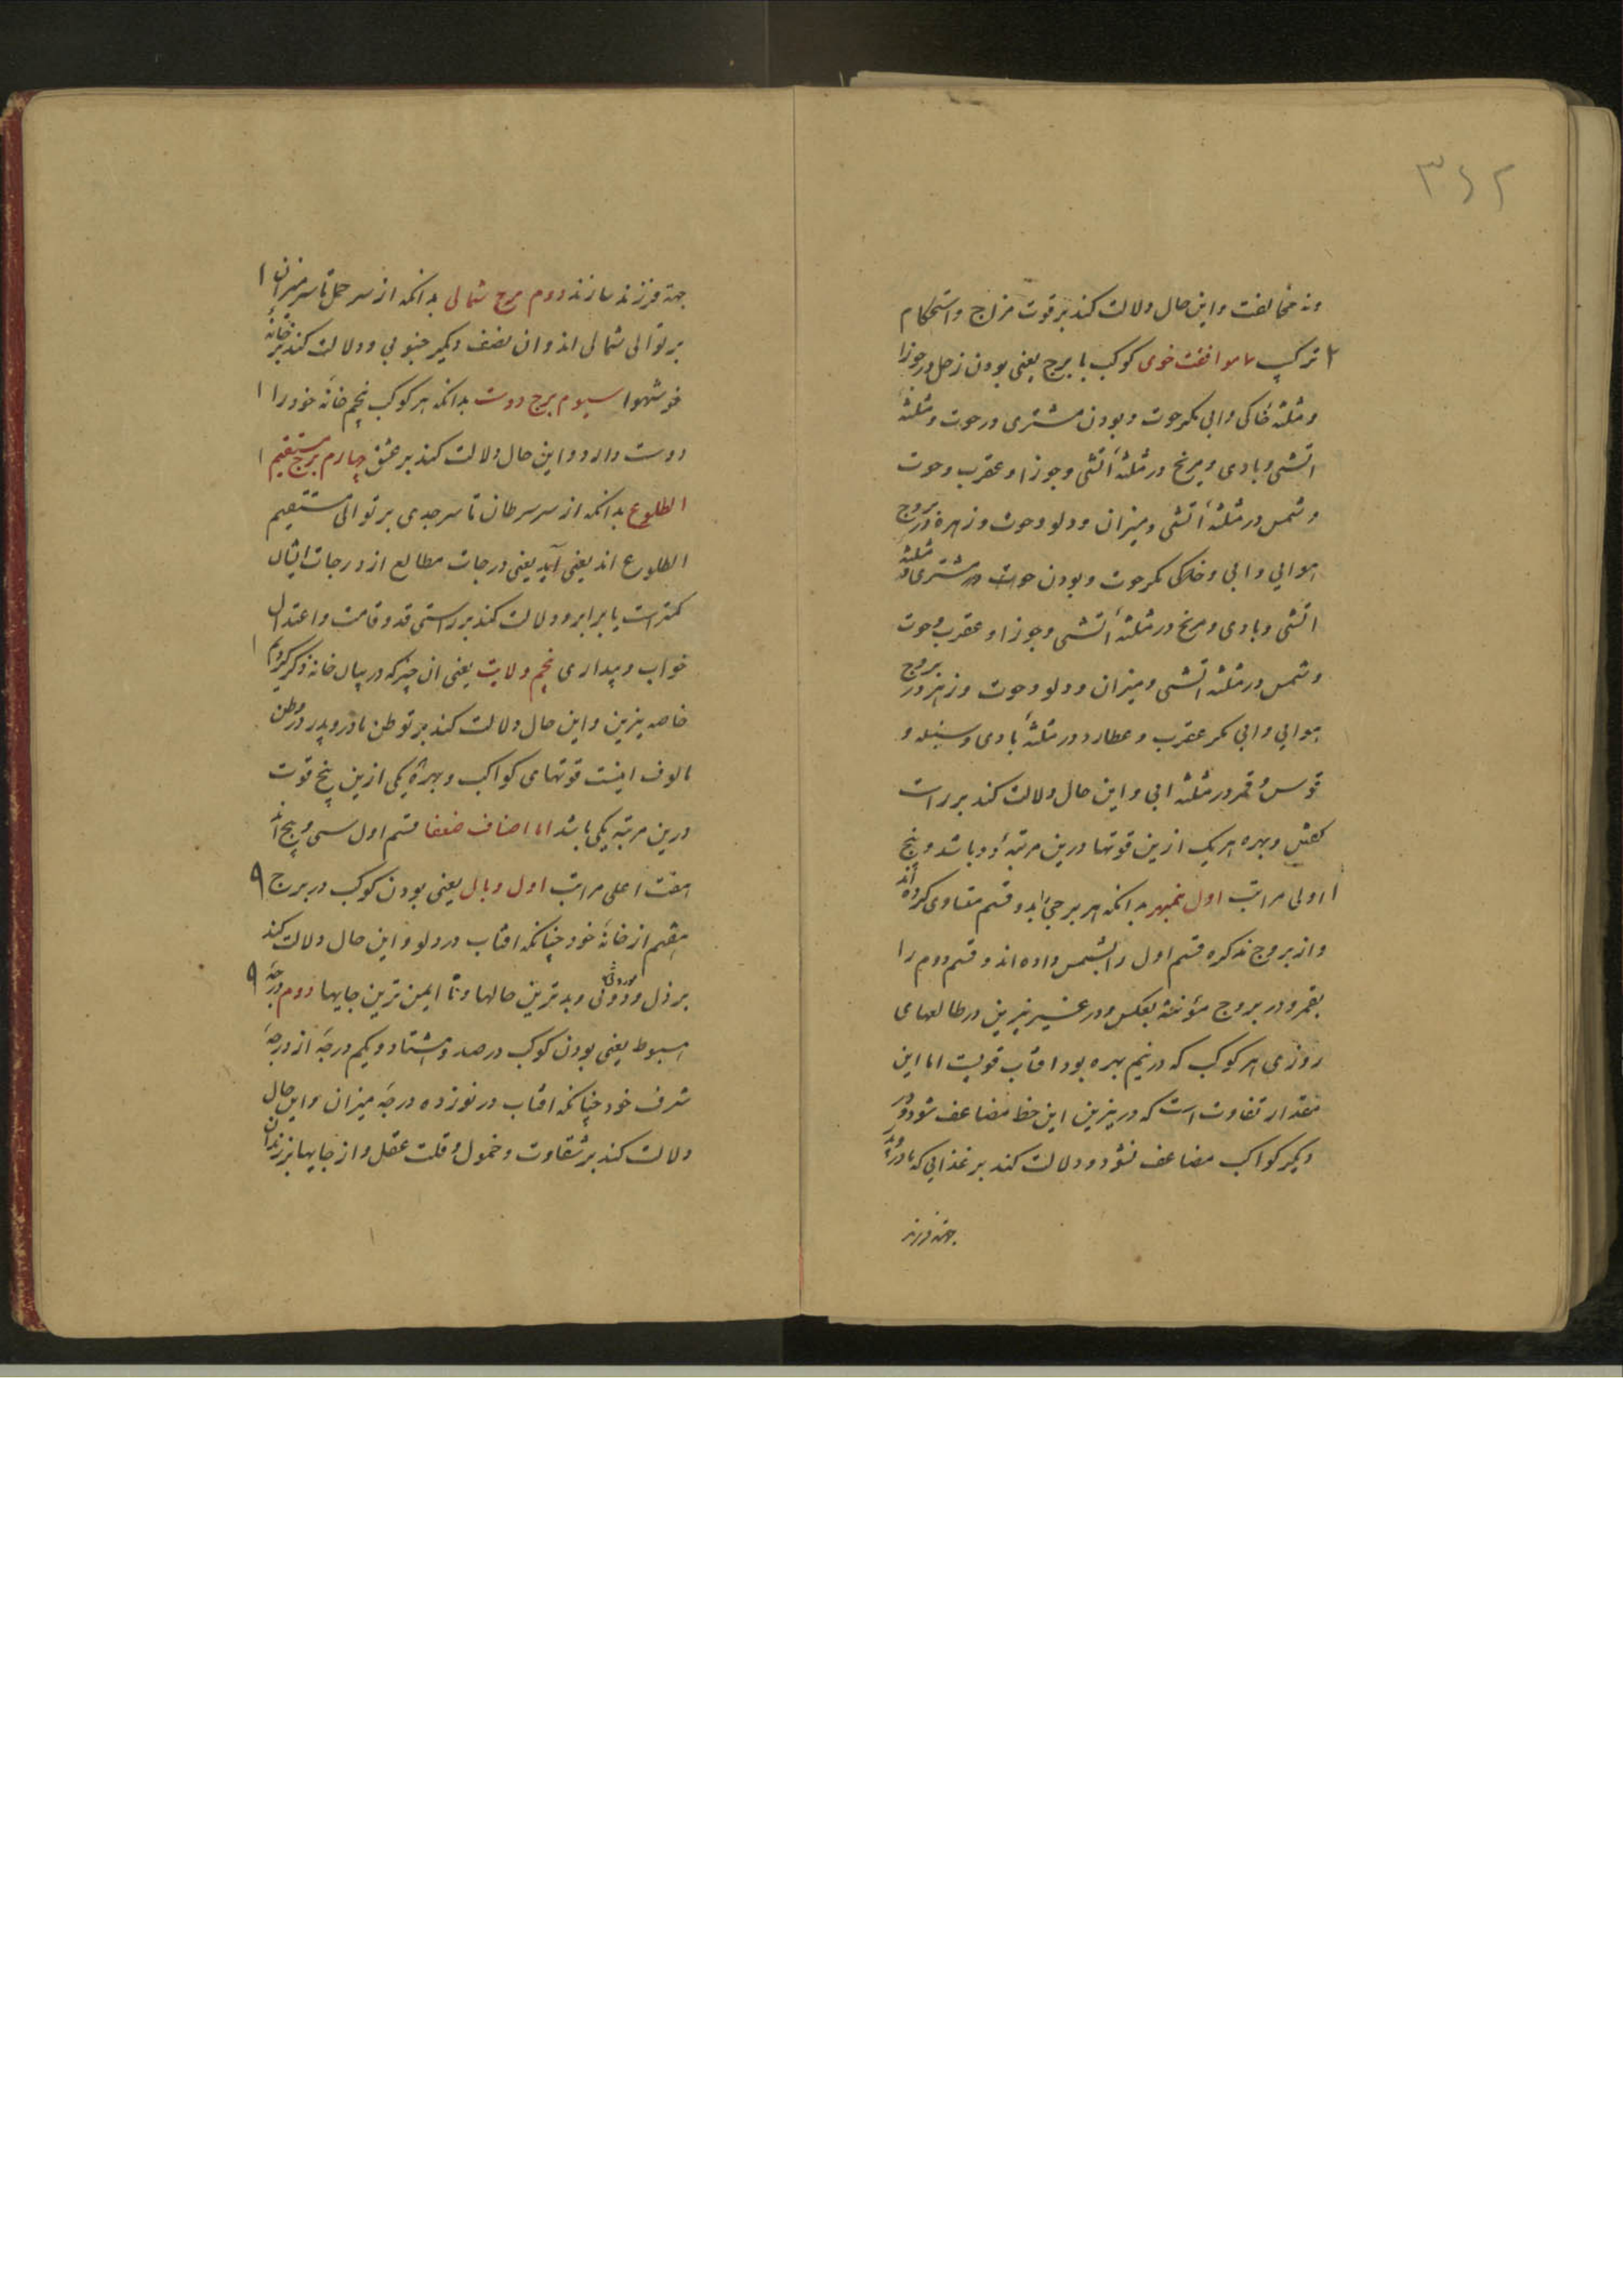 ۳۶۲
ونه مخالفت واین حال دلالت کند بر قوت مزاج واستحکام
۲ ترکیب ۷ موافقت خوی کوکب با برج یعنی بودن زحل در جوزا
ومثلثه خاکی وابی مکر حوت وبودن مشتری در حوت ومثلثه
اتشی وبادی ومریخ در مثلثهٔ اتشی وجوزا وعقرب وحوت
وشمس در مثلثه اتشی ومیزان ودلو وحوت وزهره در بروج
هوایی وابی وخاکی مکر حوت وبودن حوت در مشتری ومثلثه
اتشی وبادی ومریخ در مثلثهٔ اتشی وجوزا وعقرب وحوت
وشمس در مثلثه اتشی ومیزان ودلو وحوت وزهره در بروج
هوایی وابی مکر عقرب وعطارد در مثلثهٔ بادی وسنبله و
قوس وقمر در مثلثه ابی واین حال دلالت کند بر راست
کفتن وبهره هریک ازین قوتها درین مرتبهٔ دو باشد وپنج
۱ اولی مراتب اول نمبهر بدانکه هر برجی را بدو قسم متساوی کرده اند
واز بروج مذکره قسم اول را بشمس داده اند وقسم دوم را
بقمر ودر بروج مؤنثه بعکس ودر غیر نیرین در طالعهای
روزی هر کوکب که در نیم بهره بود افتاب قویست اما این
مقدار تفاوت است که در نیرین این حظ مضاعف شود ودر
دیکر کواکب مضاعف نشود ودلالت کند بر غذایی که مادر وپدر
جهة فرزند
جهة فرزند سازند دوم برج شمالی بدانکه از سر حمل تا سر میزان ۱
بر توالی شمالی اند وان نصف دیکر جنوبی ودلالت کند بر خانهٔ
خوشهوا سیوم برج دوست بدانکه هر کوکب پنجم خانهٔ خود را ۱
دوست دارد واین حال دلالت کند بر عشق چهارم برج مستقیم ۱
الطلوع بدانکه از سر سرطان تا سر جدی بر توالی مستقیم
الطلوع اند یعنی آید یعنی درجات مطالع از درجات ایشان
کمتر است یا برابر ودلالت کند بر راستی قد وقامت واعتدال
خواب وبیداری پنجم ولایت یعنی ان چیز که در بیان خانه ذکر کردیم ۱
خاصه نیرین واین حال دلالت کند بر توطن مادر وپدر در وطن
مالوف اینست قوتهای کواکب وبهرهٔ یکی ازین پنج قوت
درین مرتبه یکی باشد اما اصناف ضعفا قسم اول سی وپنج اند
هفت اعلی مراتب اول وبال یعنی بودن کوکب در برج ۹
هفتم از خانهٔ خود چنانکه افتاب در دلو واین حال دلالت کند
بر ذل ودونی وبدترین حالها ونا ایمن ترین جایها دوم درجهٔ ۹
هبوط یعنی بودن کوکب در صد وهشتاد ویکم درجهٔ از درجهٔ
شرف خود چنانکه افتاب در نوزده درجهٔ میزان واین حال
دلالت کند بر شقاوت وخمول وقلت عقل واز جایها بر زندان